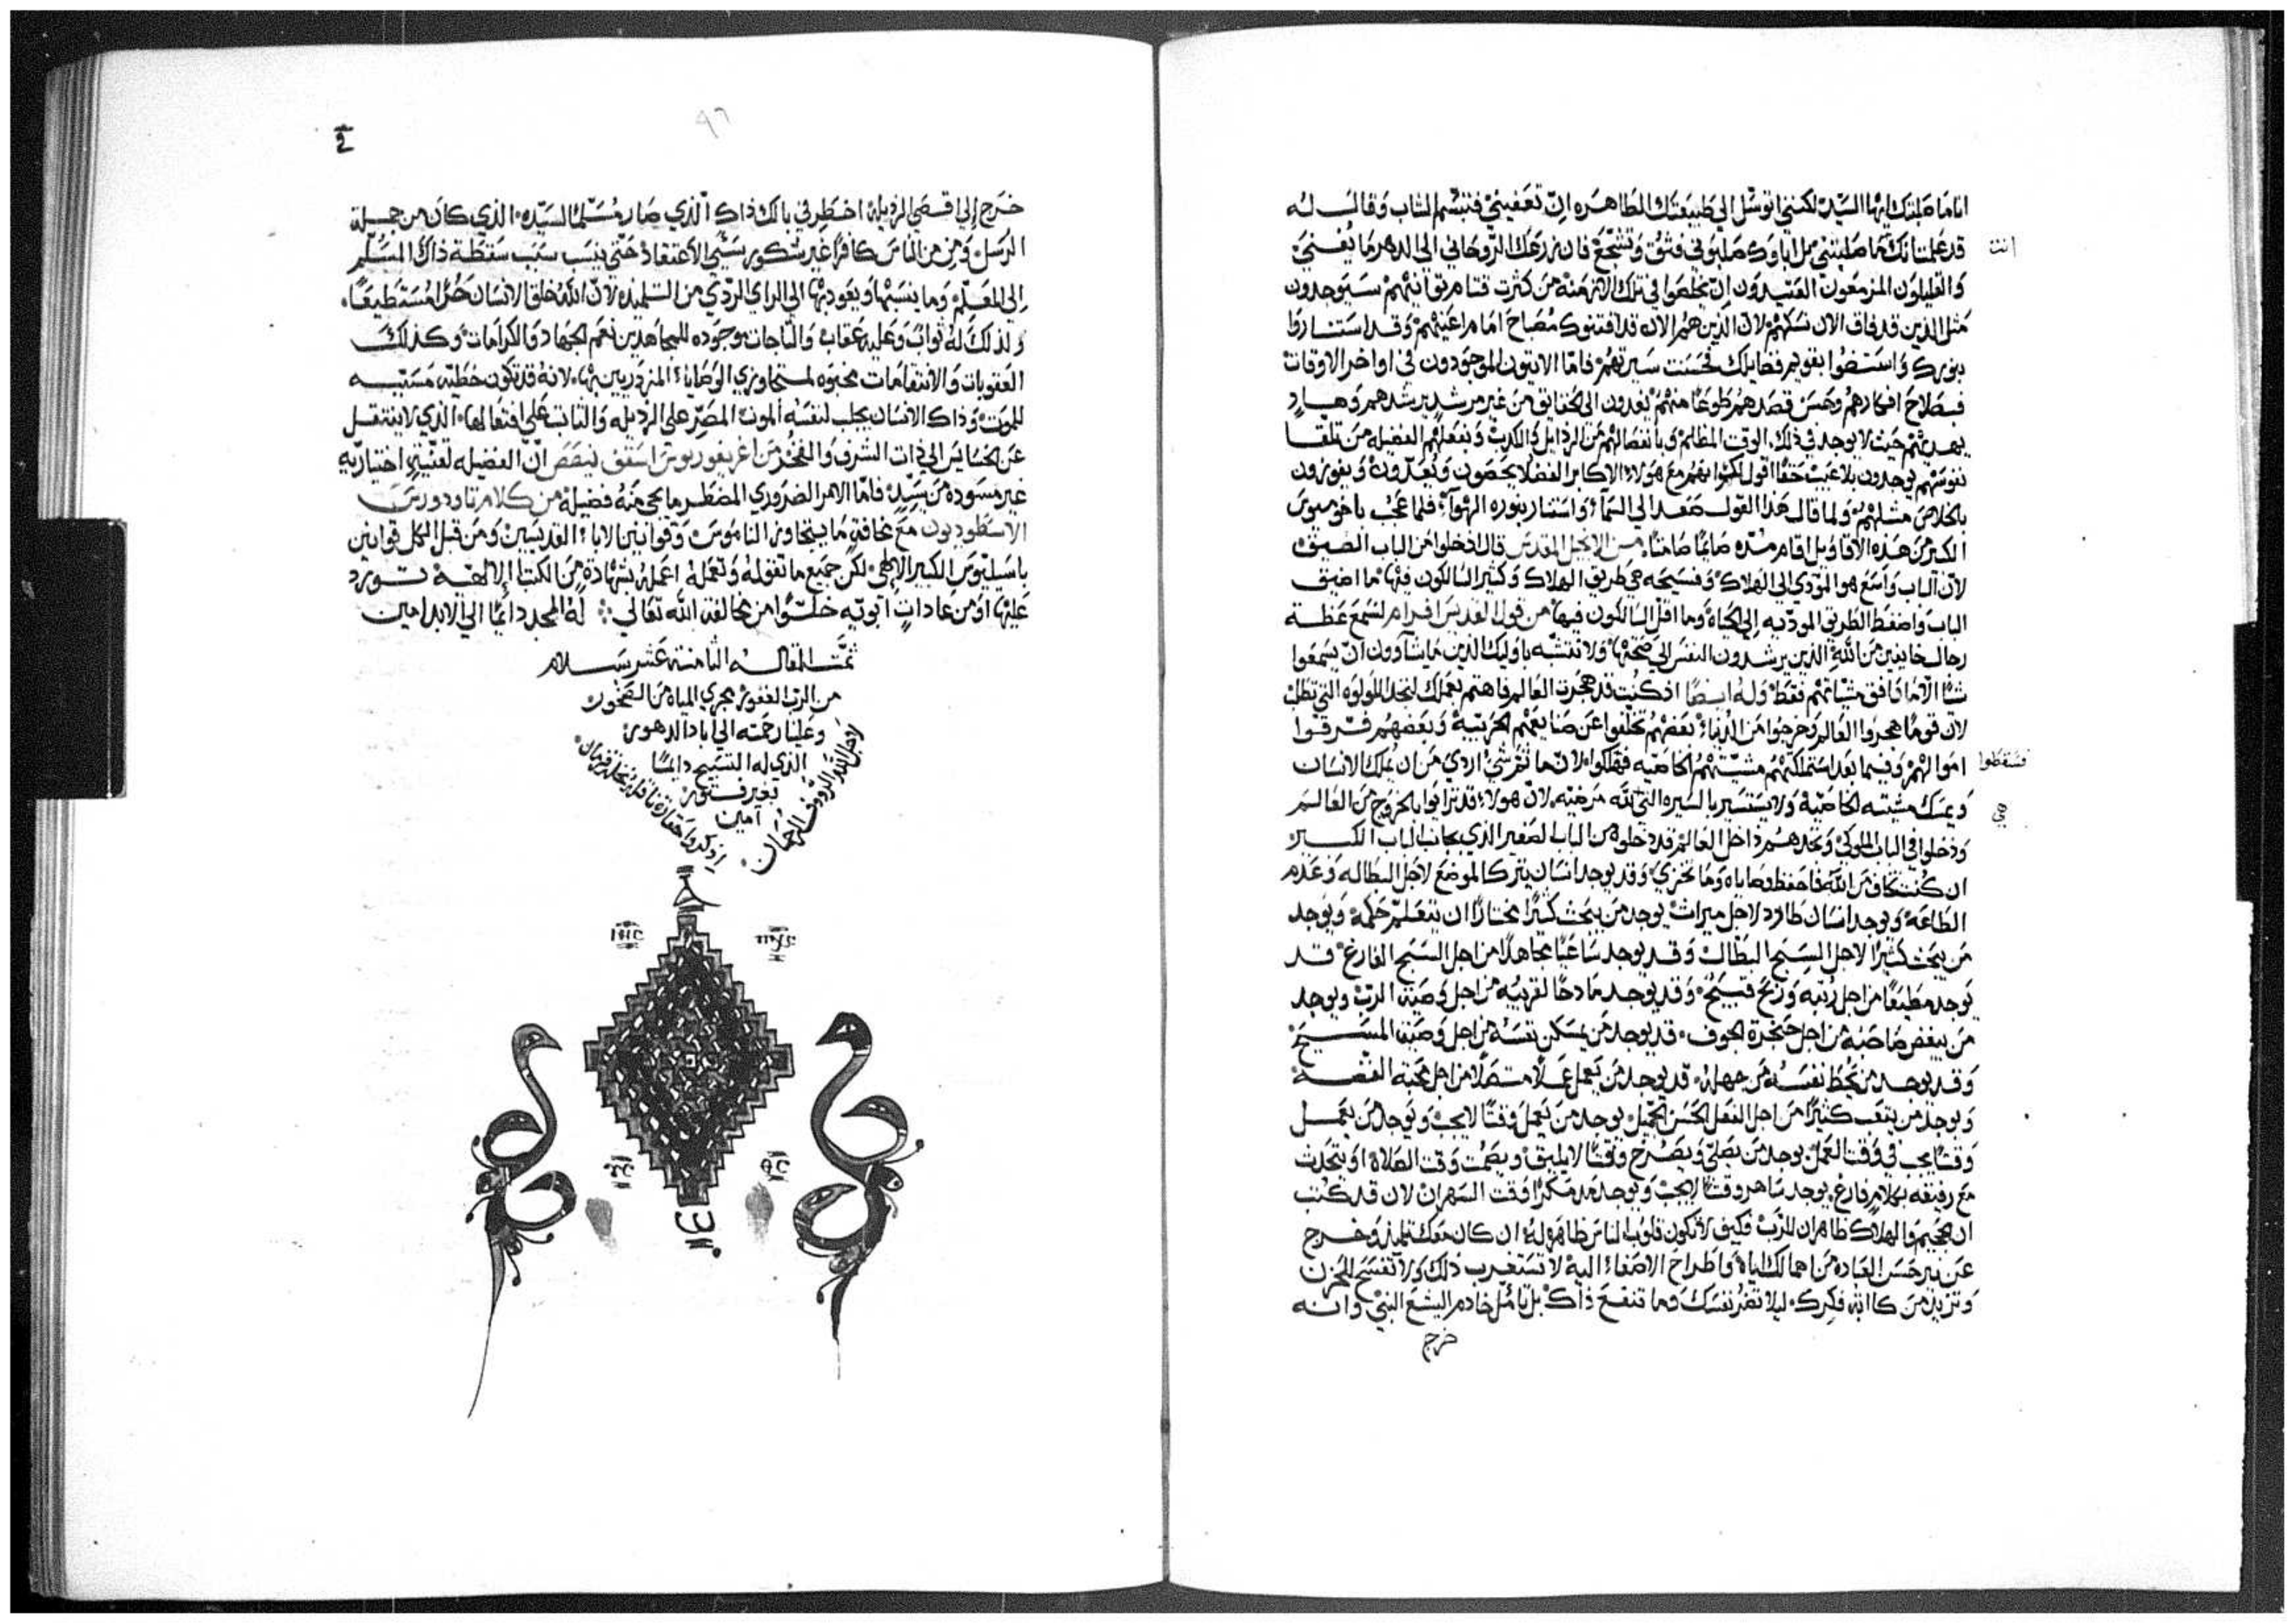 انا ما صلبتك ايها السيّد لكنني اتوسّل الي طبيعتك الطاهره ان تعفيني فتبسّم الشاب وقال له
قد علمت انك ما صلبتني بل اباوك صلبوني فثق وتشجّع فان زرعك الروحاني الي الدهر ما يفني
انت
والقليلون المزمعون العتيدون ان يخلصوا في تلك الازمنة من كثرت
مثل الذين قد فاق الان نسكهم لان الذين هم الان قد اقتنوك مصباح امام اعينهم وقد استناروا
بنورك واستضوا بقويم فضايلك فحسنت سيرتهم فامّا الاتيون الموجودون في اواخر الاوقات
فبصلاح افكارهم وحسن قصدهم طوعًا منهم يغدون الي الحقايق من غير مرشد يرشدهم وهاد
يهديهم حيث لا يوجد في ذلك الوقت المظلم وبانفصالهم من الرذايل والكدب وبفعلهم الفضيله من تلقا
نفوسهم يوجدون بلا عيب حقًا اقول لكم انهم مع هولاء الاكابر الفضلا يحصون ويعدّون ويفوزون
بالخلاص مثلهم ولما قال هذا القول صعد الي السما واستنار بنوره الهوآ فلما عجب باخوميوس
الكبير من هذه الاقاويل اقام مدّه صايمًا صامتًا من الانجيل المقدس قال ادخلوا من الباب الضيق
لان الباب واسع هو المودي الي الهلاك وفسيحه هي طريق الهلاك وكثير السالكون فيها ما اضيق
الباب واضغط الطريق الموديه الي الحياة وما اقل السالكون فيها من قول القديس افرام لتسمع عظة
رجال خايفين من الله الذين يرشدون النفس الي صحتها ولا تتشبه باوليك الذين ما يشاوون ان يسمعوا
شيًا الا ما وافق مشياتهم فقط وله ايضًا اذ كنت قد هجرت العالم فاهتم بعملك لتجد اللولوه التي تطلب
لان قومًا هجروا العالم وخرجوا من الدنيا بعضهم تخلفوا عن صنايعهم الحربية وبعضهم فرقوا
اموالهم وفيما بعد استملكتهم مشيّتهم الخاصيه فهلكوا لان ما تمّ شي اردي من ان يملك الانسان
فسقطوا
ويمسك مشيته الخاصّية ولا يستسير بالسيره التي لله مرضيه لان هولاء قد تراوا بالخروج من العالم
هي
ودخلوا في الباب الملوكي ونجدهم داخل العالم قد دخلوا من الباب الصغير الذي بجانب الباب الكبير
ان كنت تخاف من الله فاحفظ وصاياه وما تخزي وقد يوجد انسان يترك الموضع لاجل البطاله وعدم
الطاعه ويوجد انسان طارد لاجل ميراث يوجد من يبحث كثيرًا مختارًا ان يتعلّم حكمه ويوجد
من يبحث كثيرًا لاجل السبح البطال وقد يوجد ساعيًا مجاهدًا من اجل السبح الفارغ قد
يوجد مطيعًا من اجل رتبه وربح قبيح وقد يوجد مادحًا لقريبه من اجل وصية الرب ويوجد
من يبغض صاحبه من اجل حنجرة الجوف قد يوجد من يمسكن نفسه من اجل وصية المسيح
وقد يوجد من يحط نفسه من جهله قد يوجد من يعمل عملًا متصلًا من اجل محبة الفضه
ويوجد من يتعب كثيرًا من اجل الفعل الحسن الجميل يوجد من يعمل وقتًا لا يجب ويوجد من يعمل
وقتًا يجب في وقت العمل يوجد من يصلي ويصرخ وقتًا لا يليق ويصمت وقت الصلاة او يتحدث
مع رفيقه بكلام فارغ يوجد ساهر وقتًا لا يجب ويوجد وقت السهران لان قد كتب
ان الجحيم والهلاك ظاهران للرب فكيف لا تكون قلوب الناس ظاهره له ان كان معك تلميذ وخرج
عن نير حسن العباده من اهمالك اياه واطراح الاصغاء اليه لا تستغرب ذلك ولا تفسح للحزن
وتزيد من كابة فكرك ليلا تضر نفسك وما تنفع ذاك بل تامّل خادم اليشع النبي وانه
خرج
خرج الي اقصي الرذيله اخطر في بالك ذاك الذي صار مسلّمًا لسيّده الذي كان من جملة
الرسل ومن من الناس كافرًا غير شكور سَيّي الاعتقاد حتي ينسب سبب سقطة ذاك المسلّم
الي المعلّم وما ينسبها ويعود بها الي الراي الردّي من التلميذ لان الله خلق الانسان حرًا مستطيعًا
ولذلك له ثواب وعليه عقاب والتاجات موجوده للمجاهدين نعم الجهاد والكرامات وكذلك
العقوبات والانتقامات مخبوه لمتجاوزي الوصايا المزدريين بها لانه قد تكون خطيّه مسبّبه
للموت وذاك الانسان يجلب لنفسه الموت المصرّ علي الرذيله والثابت علي افتعالها الذي لا ينتقل
عن الخسايس الي ذات الشرف والفخر من اغريغوريوس اسقف نيصص ان الفضيله لقنيه اختياريه
غير مسوده من سيّد فامّا الامر الضروري المضطر ما يجي منه فضيلة من كلام تاودورس
الاسطوديون مع مخافةٍ ما يتجاوز الناموس وقوانين الاباء القديسين ومن قبل الكل قوانين
باسيليوس الكبير الالهي لكن جميع ما تقوله وتعمله اعمله بشهادة من الكتب الالهية تورد
عليها او من عادات ابويّه خلّوًا من مخالفة الله تعالي له المجد دايمًا الي الابد امين
تمّت المقاله الثامنة عشر بسلام
من الرب الغفور مجري المياه من الصخور
وعلينا رحمته الي اباد الدهور
الذي له التسبيح دايمًا
بغير فتور
آمين
٩٦